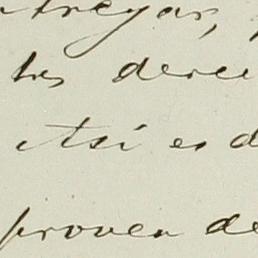 ntregar,
tes derec
Así es d
proveen de